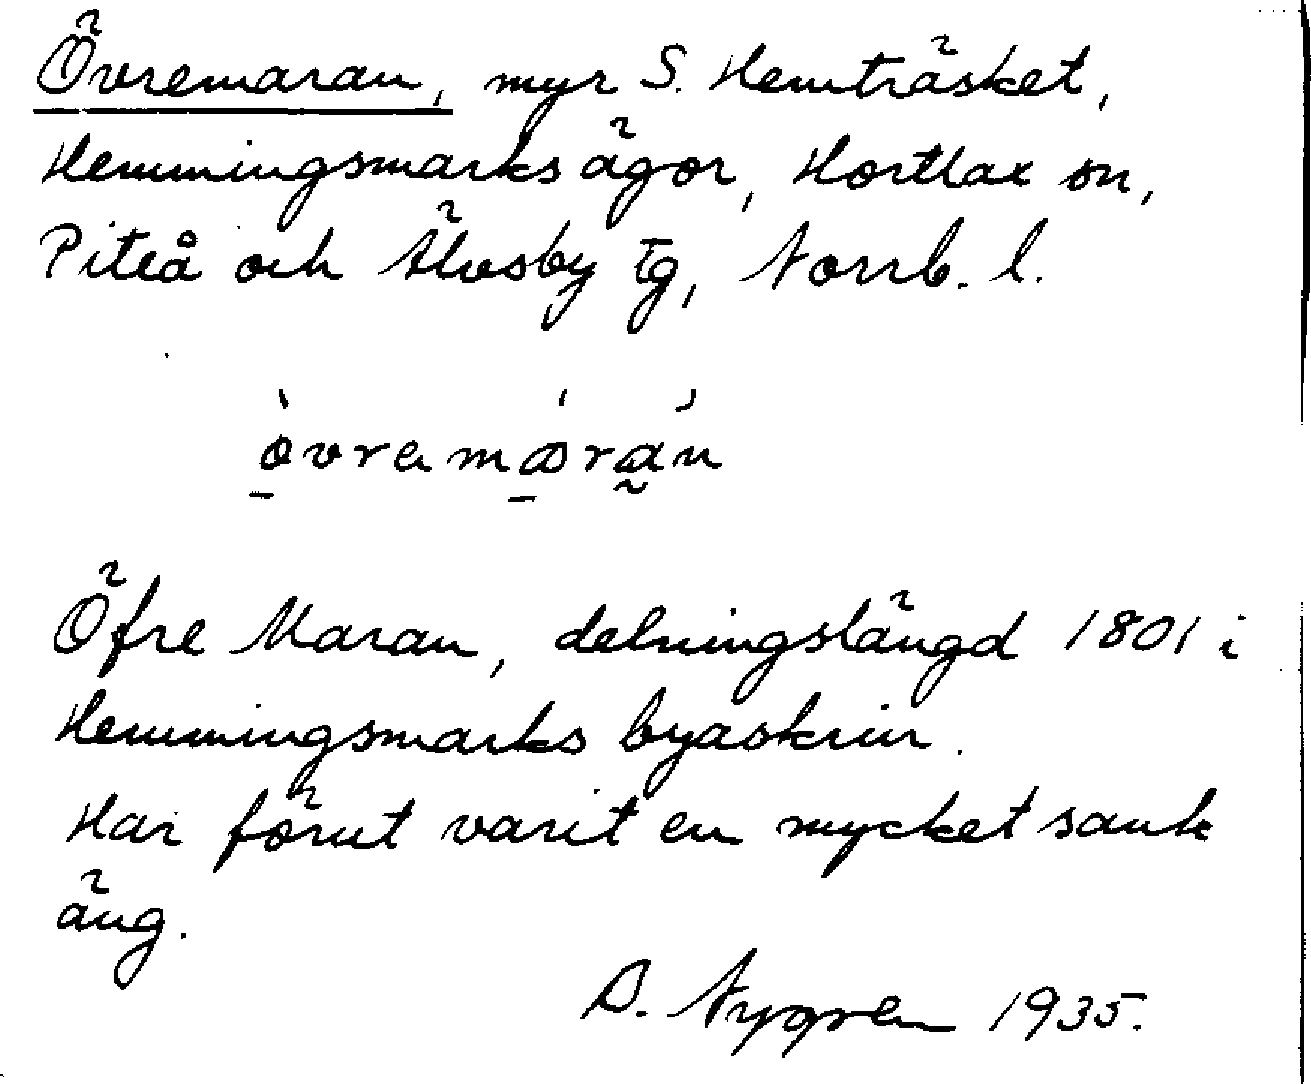 Övremaran, myr S. Hemträsket,
Hemmingsmarks ägor, Hortlax sn,
Piteå och Älvsby tg, Norrb. l.
òvremáran
Öfre Maran, delningslängd 1801 i
Hemmingsmarks byaskrin.
Har förut varit en mycket sank
äng.
D. Nygren 1935.